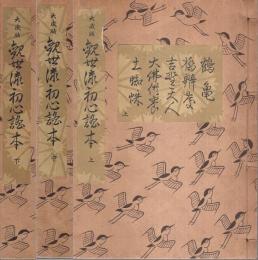 大成版
観世流初心謡本
上
鶴亀
橋弁慶
吉野天人
大仏供養
土蜘蛛
上
大成版
観世流初心謡本
中
大成版
観世流初心謡本
下